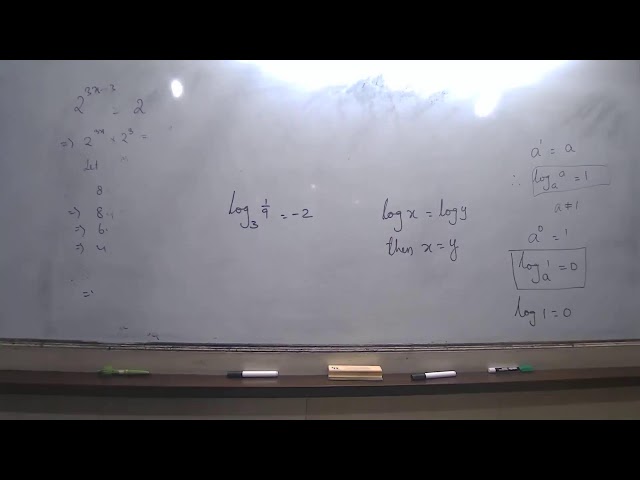 2^{3x-3} = 2
=) 2^{3x} × 2^3 =
Let
8
=) 8
=) 6
=) 4
=)
log_3 1/9 = -2
log x = log y
then x = y
a^1 = a
∴ log_a a = 1
a ≠ 1
a^0 = 1
log_a 1 = 0
log 1 = 0